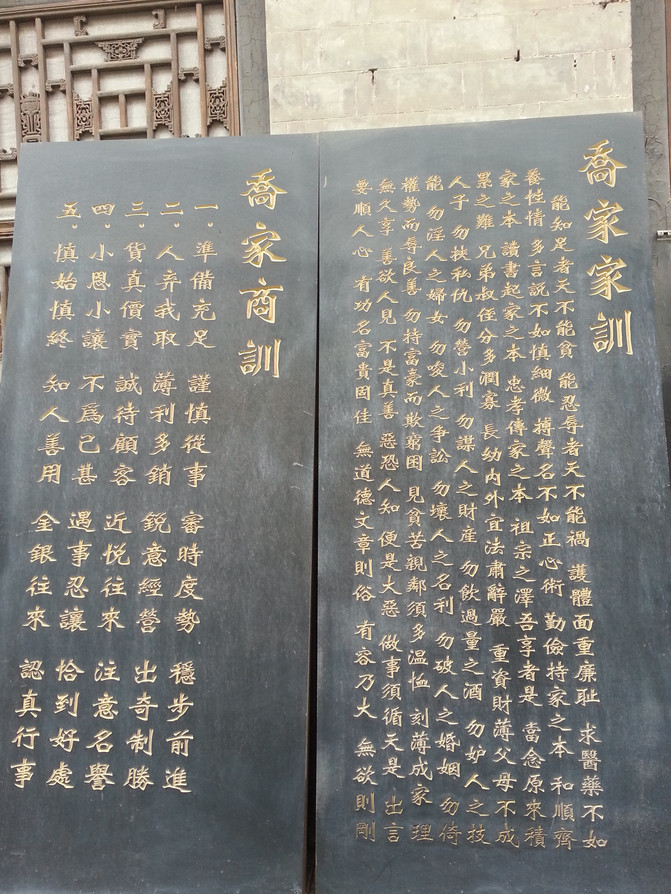 喬家家訓
能知足者天不能貧 能忍辱者天不能禍 護體面重廉耻 求醫藥不如
養性情 多言說不如慎細微 摶聲名不如正心術 勤儉持家之本 和順齊
家之本 讀書起家之本 忠孝傳家之本 祖宗之澤吾享者是 當念原來積
累之難 兄弟叔侄分多潤寡 長幼內外宜法肅辭嚴 重資財薄父母不成
人子 勿挾私仇 勿營小利 勿謀人之財産 勿飲過量之酒 勿妒人之技
能 勿淫人之婦女 勿唆人之爭訟 勿壞人之名利 勿破人之婚姻 勿倚
權勢而辱良善 勿持富豪而欺窮困 見貧苦親鄰須多温恤 刻薄成家 理
無久享 善欲人見 不是真善 惡恐人知 便是大惡 做事須循天是 出言
要順人心 有功名富貴固佳 無道德文章則俗 有容乃大 無欲則剛
喬家商訓
一。準備充足 謹慎從事 審時度勢 穩步前進
二。人弃我取 薄利多銷 銳意經營 出奇制勝
三。貨真價實 誠待顧客 近悅往來 注意名譽
四。小恩小讓 不爲已甚 遇事忍讓 恰到好處
五。慎始慎終 知人善用 金銀往來 認真行事